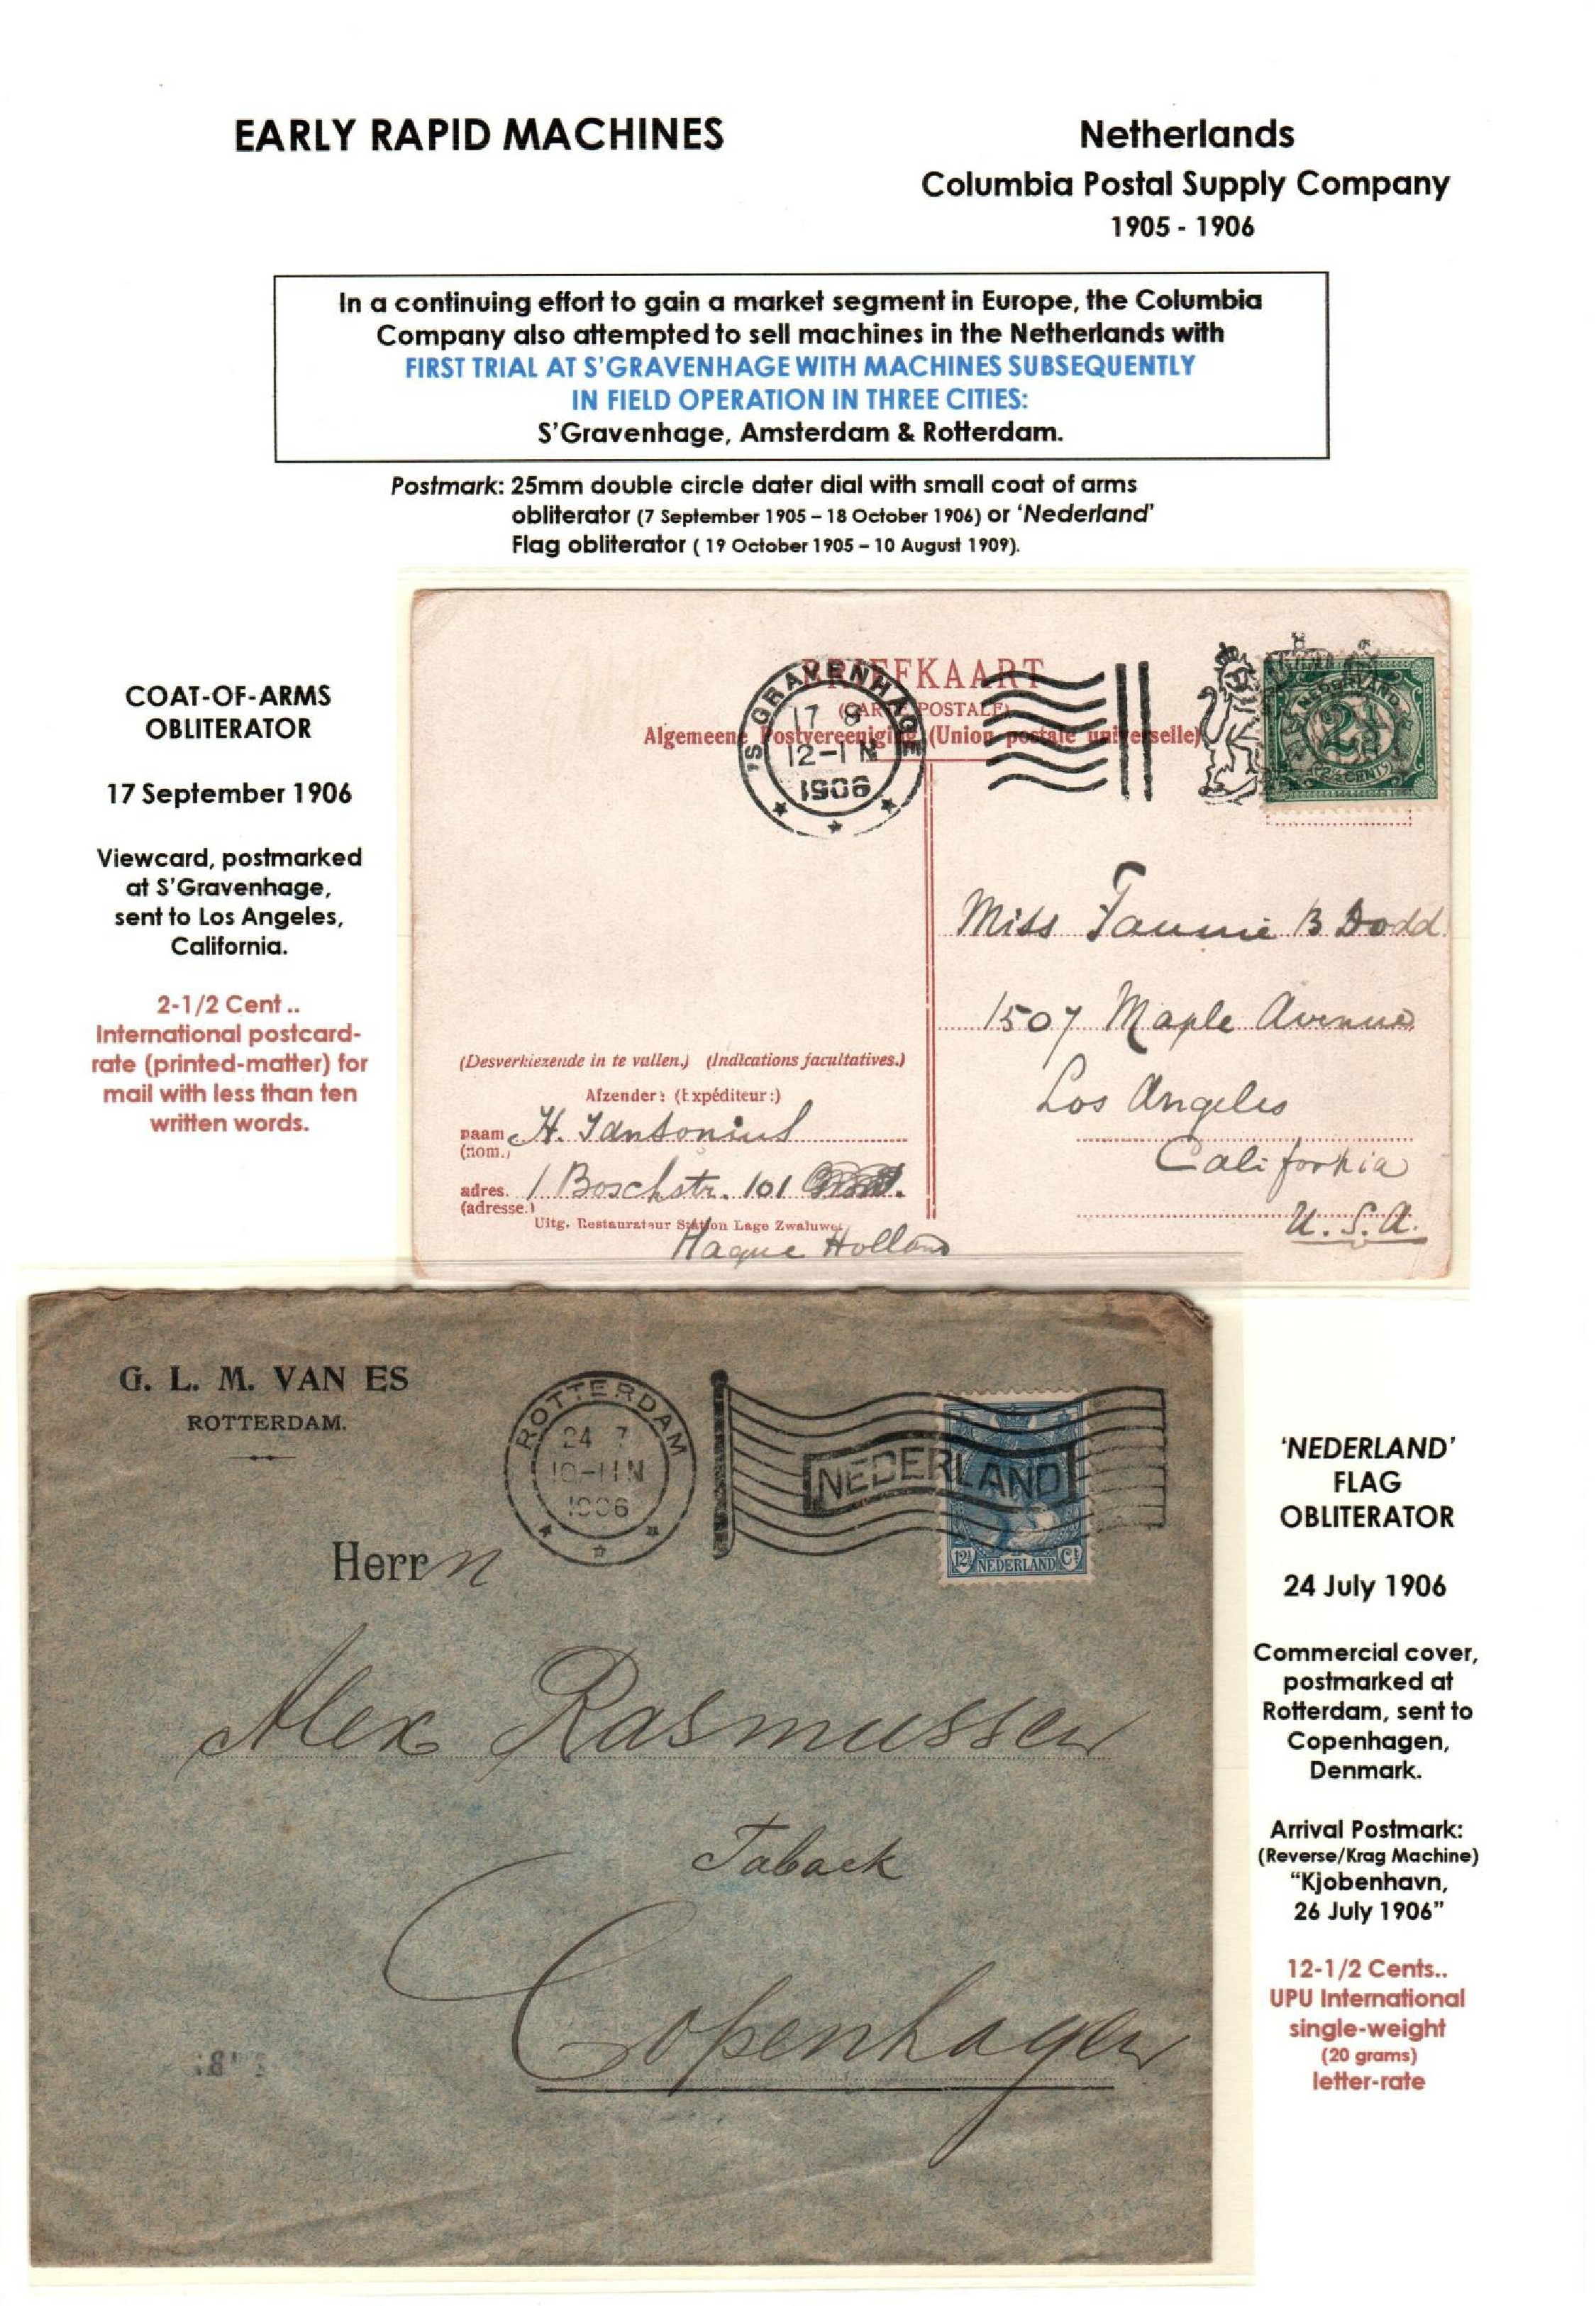 EARLY RAPID MACHINES
Netherlands
Columbia Postal Supply Company
1905 - 1906
In a continuing effort to gain a market segment in Europe, the Columbia
Company also attempted to sell machines in the Netherlands with
FIRST TRIAL AT S'GRAVENHAGE WITH MACHINES SUBSEQUENTLY
IN FIELD OPERATION IN THREE CITIES:
S'Gravenhage, Amsterdam & Rotterdam.
Postmark: 25mm double circle dater dial with small coat of arms
obliterator (7 September 1905 – 18 October 1906) or 'Nederland'
Flag obliterator ( 19 October 1905 – 10 August 1909).
COAT-OF-ARMS
OBLITERATOR
17 September 1906
Viewcard, postmarked
at S'Gravenhage,
sent to Los Angeles,
California.
2-1/2 Cent ..
International postcard-
rate (printed-matter) for
mail with less than ten
written words.
BRIEFKAART
(CARTE POSTALE)
Algemeene Postvereeniging (Union postale universelle)
'S GRAVENHAGE
17 8
12-1 N
1906
NEDERLAND
2½
(2½ CENT)
Miss Fannie B Dodd
1507 Maple Avenue
Los Angeles
California
U.S.A.
(Desverkiezende in te vullen.) (Indications facultatives.)
Afzender: (Expéditeur:)
naam H. Jantonius
(nom.)
adres. 1 Boschstr. 101
(adresse.)
Uitg. Restaurateur Station Lage Zwaluwe.
Hague Holland
G. L. M. VAN ES
ROTTERDAM.
ROTTERDAM
24 7
10-11 N
1906
NEDERLAND
12½ NEDERLAND Ct
Herrn
Alex Rasmussen
Taback
Copenhagen
'NEDERLAND'
FLAG
OBLITERATOR
24 July 1906
Commercial cover,
postmarked at
Rotterdam, sent to
Copenhagen,
Denmark.
Arrival Postmark:
(Reverse/Krag Machine)
"Kjobenhavn,
26 July 1906"
12-1/2 Cents..
UPU International
single-weight
(20 grams)
letter-rate